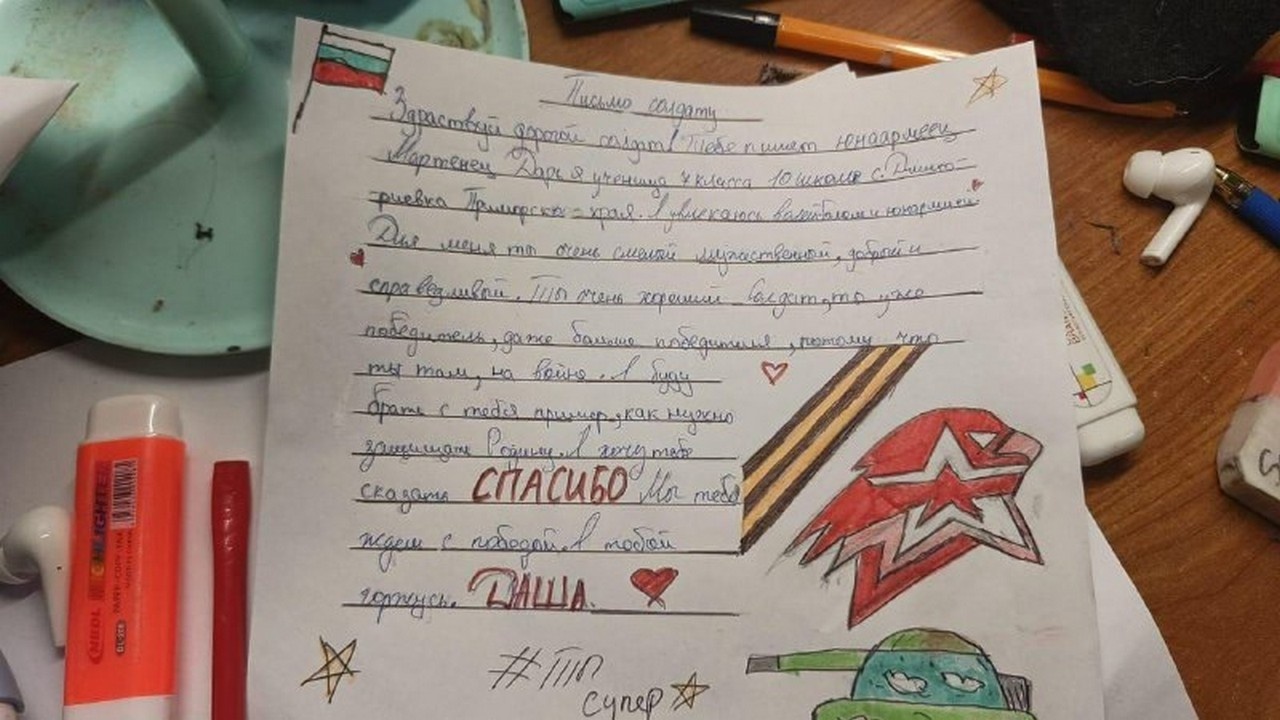 Письмо солдату
Здраствуй дорогой солдат! Тебе пишет юнаармеец
Дарья ученица класса 10 школы с.
Приморского края. Я увлекаюсь валейболом и юнармией.
Для меня ты очень смелой мужаственной, доброй и
справедливой. Ты очень хороший Солдат, ты уже
победитель, даже больше победителя, потому что
ты там, на войне. Я буду
брать с тебя пример, как нужно
защищать Родину. Я хочу тебе
сказать СПАСИБО Мы тебя
ждем с победой. Я тобой
горжусь. ДАША.
#ТЫ
супер